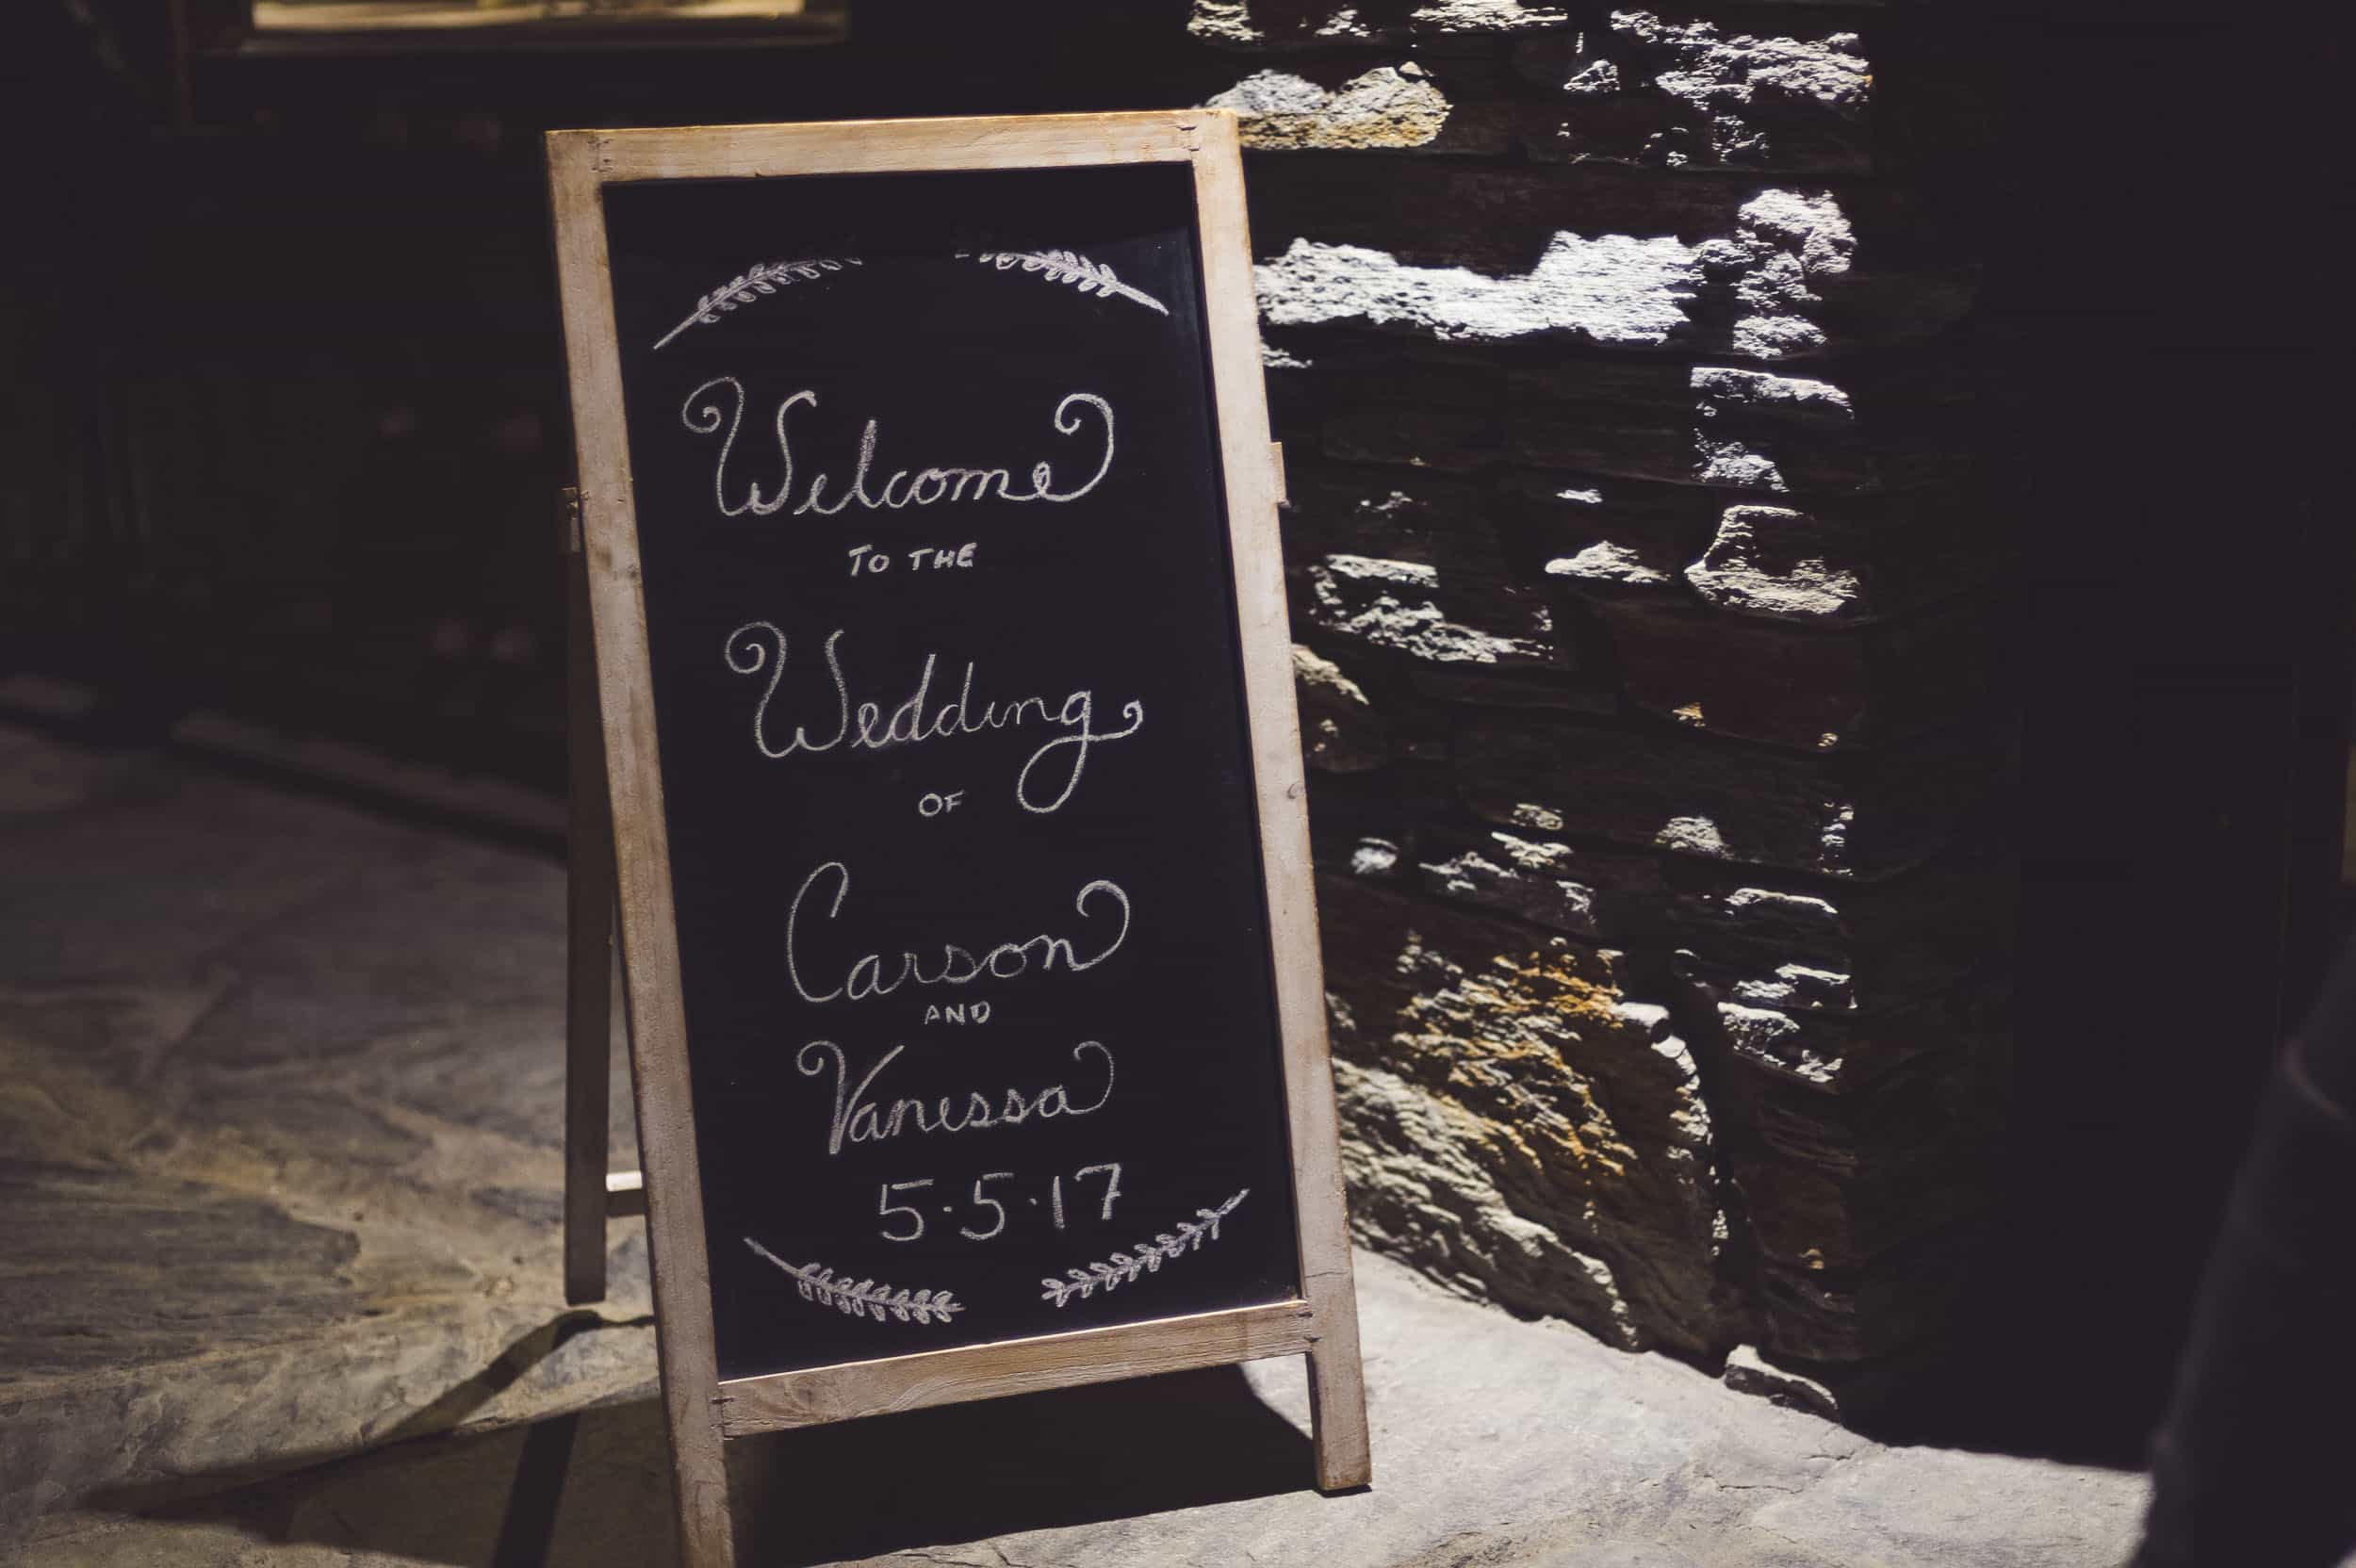 Welcome
TO THE
Wedding
OF
Carson
AND
Vanessa
5·5·17